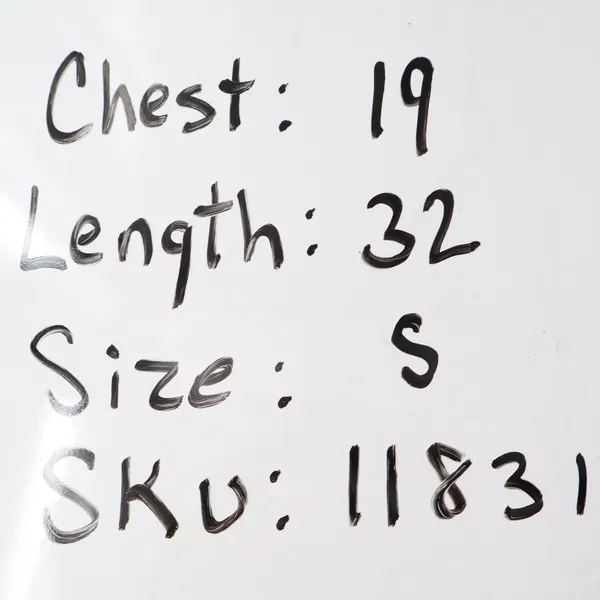 Chest: 19
Length: 32
Size: S
SKU: 11831